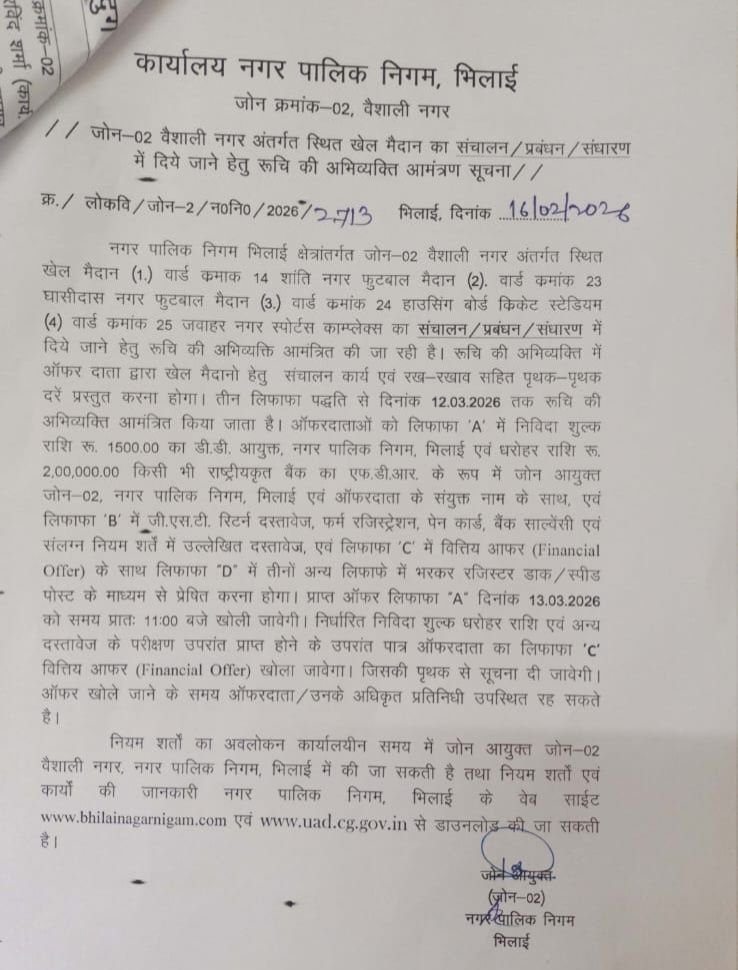 कमांक–02
रविंद शर्मा (कार्य.
कार्यालय नगर पालिक निगम, भिलाई
जोन क्रमांक–02, वैशाली नगर
// जोन–02 वैशाली नगर अंतर्गत स्थित खेल मैदान का संचालन/प्रबंधन/संधारण
में दिये जाने हेतु रूचि की अभिव्यक्ति आमंत्रण सूचना//
क्र./ लोकवि/जोन–2/न0नि0/2026/2713 भिलाई, दिनांक 16/02/2026
नगर पालिक निगम भिलाई क्षेत्रांतर्गत जोन–02 वैशाली नगर अंतर्गत स्थित
खेल मैदान (1.) वार्ड कमाक 14 शांति नगर फुटबाल मैदान (2). वार्ड कमांक 23
घासीदास नगर फुटबाल मैदान (3.) वार्ड कमांक 24 हाउसिंग बोर्ड किकेट स्टेडियम
(4) वार्ड कमांक 25 जवाहर नगर स्पोर्टस काम्प्लेक्स का संचालन/प्रबंधन/संधारण में
दिये जाने हेतु रूचि की अभिव्यक्ति आमंत्रित की जा रही है। रूचि की अभिव्यक्ति में
ऑफर दाता द्वारा खेल मैदानो हेतु संचालन कार्य एवं रख–रखाव सहित पृथक–पृथक
दरें प्रस्तुत करना होगा। तीन लिफाफा पद्वति से दिनांक 12.03.2026 तक रूचि की
अभिव्यक्ति आमंत्रित किया जाता है। ऑफरदाताओं को लिफाफा 'A' में निविदा शुल्क
राशि रू. 1500.00 का डी.डी. आयुक्त, नगर पालिक निगम, भिलाई एवं धरोहर राशि रू.
2,00,000.00 किसी भी राष्ट्रीयकृत बैंक का एफ.डी.आर. के रूप में जोन आयुक्त
जोन–02, नगर पालिक निगम, भिलाई एवं ऑफरदाता के संयुक्त नाम के साथ, एवं
लिफाफा 'B' में जी.एस.टी. रिटर्न दस्तावेज, फर्म रजिस्ट्रेशन, पेन कार्ड, बैंक साल्वेंसी एवं
संलग्न नियम शर्तें में उल्लेखित दस्तावेज, एवं लिफाफा 'C' में वित्तिय आफर (Financial
Offer) के साथ लिफाफा "D" में तीनों अन्य लिफाफे में भरकर रजिस्टर डाक/स्पीड
पोस्ट के माध्यम से प्रेषित करना होगा। प्राप्त ऑफर लिफाफा "A" दिनांक 13.03.2026
को समय प्रातः 11:00 बजे खोली जावेगी। निर्धारित निविदा शुल्क धरोहर राशि एवं अन्य
दस्तावेज के परीक्षण उपरांत प्राप्त होने के उपरांत पात्र ऑफरदाता का लिफाफा 'C'
वित्तिय आफर (Financial Offer) खोला जावेगा। जिसकी पृथक से सूचना दी जावेगी।
ऑफर खोले जाने के समय ऑफरदाता/उनके अधिकृत प्रतिनिधी उपस्थित रह सकते
है।
नियम शर्तो का अवलोकन कार्यालयीन समय में जोन आयुक्त जोन–02
वैशाली नगर, नगर पालिक निगम, भिलाई में की जा सकती है तथा नियम शर्तो एवं
कार्यो की जानकारी नगर पालिक निगम, भिलाई के वेब साईट
www.bhilainagarnigam.com एवं www.uad.cg.gov.in से डाउनलोड की जा सकती
है।
जोन आयुक्त
(जोन–02)
नगर पालिक निगम
भिलाई